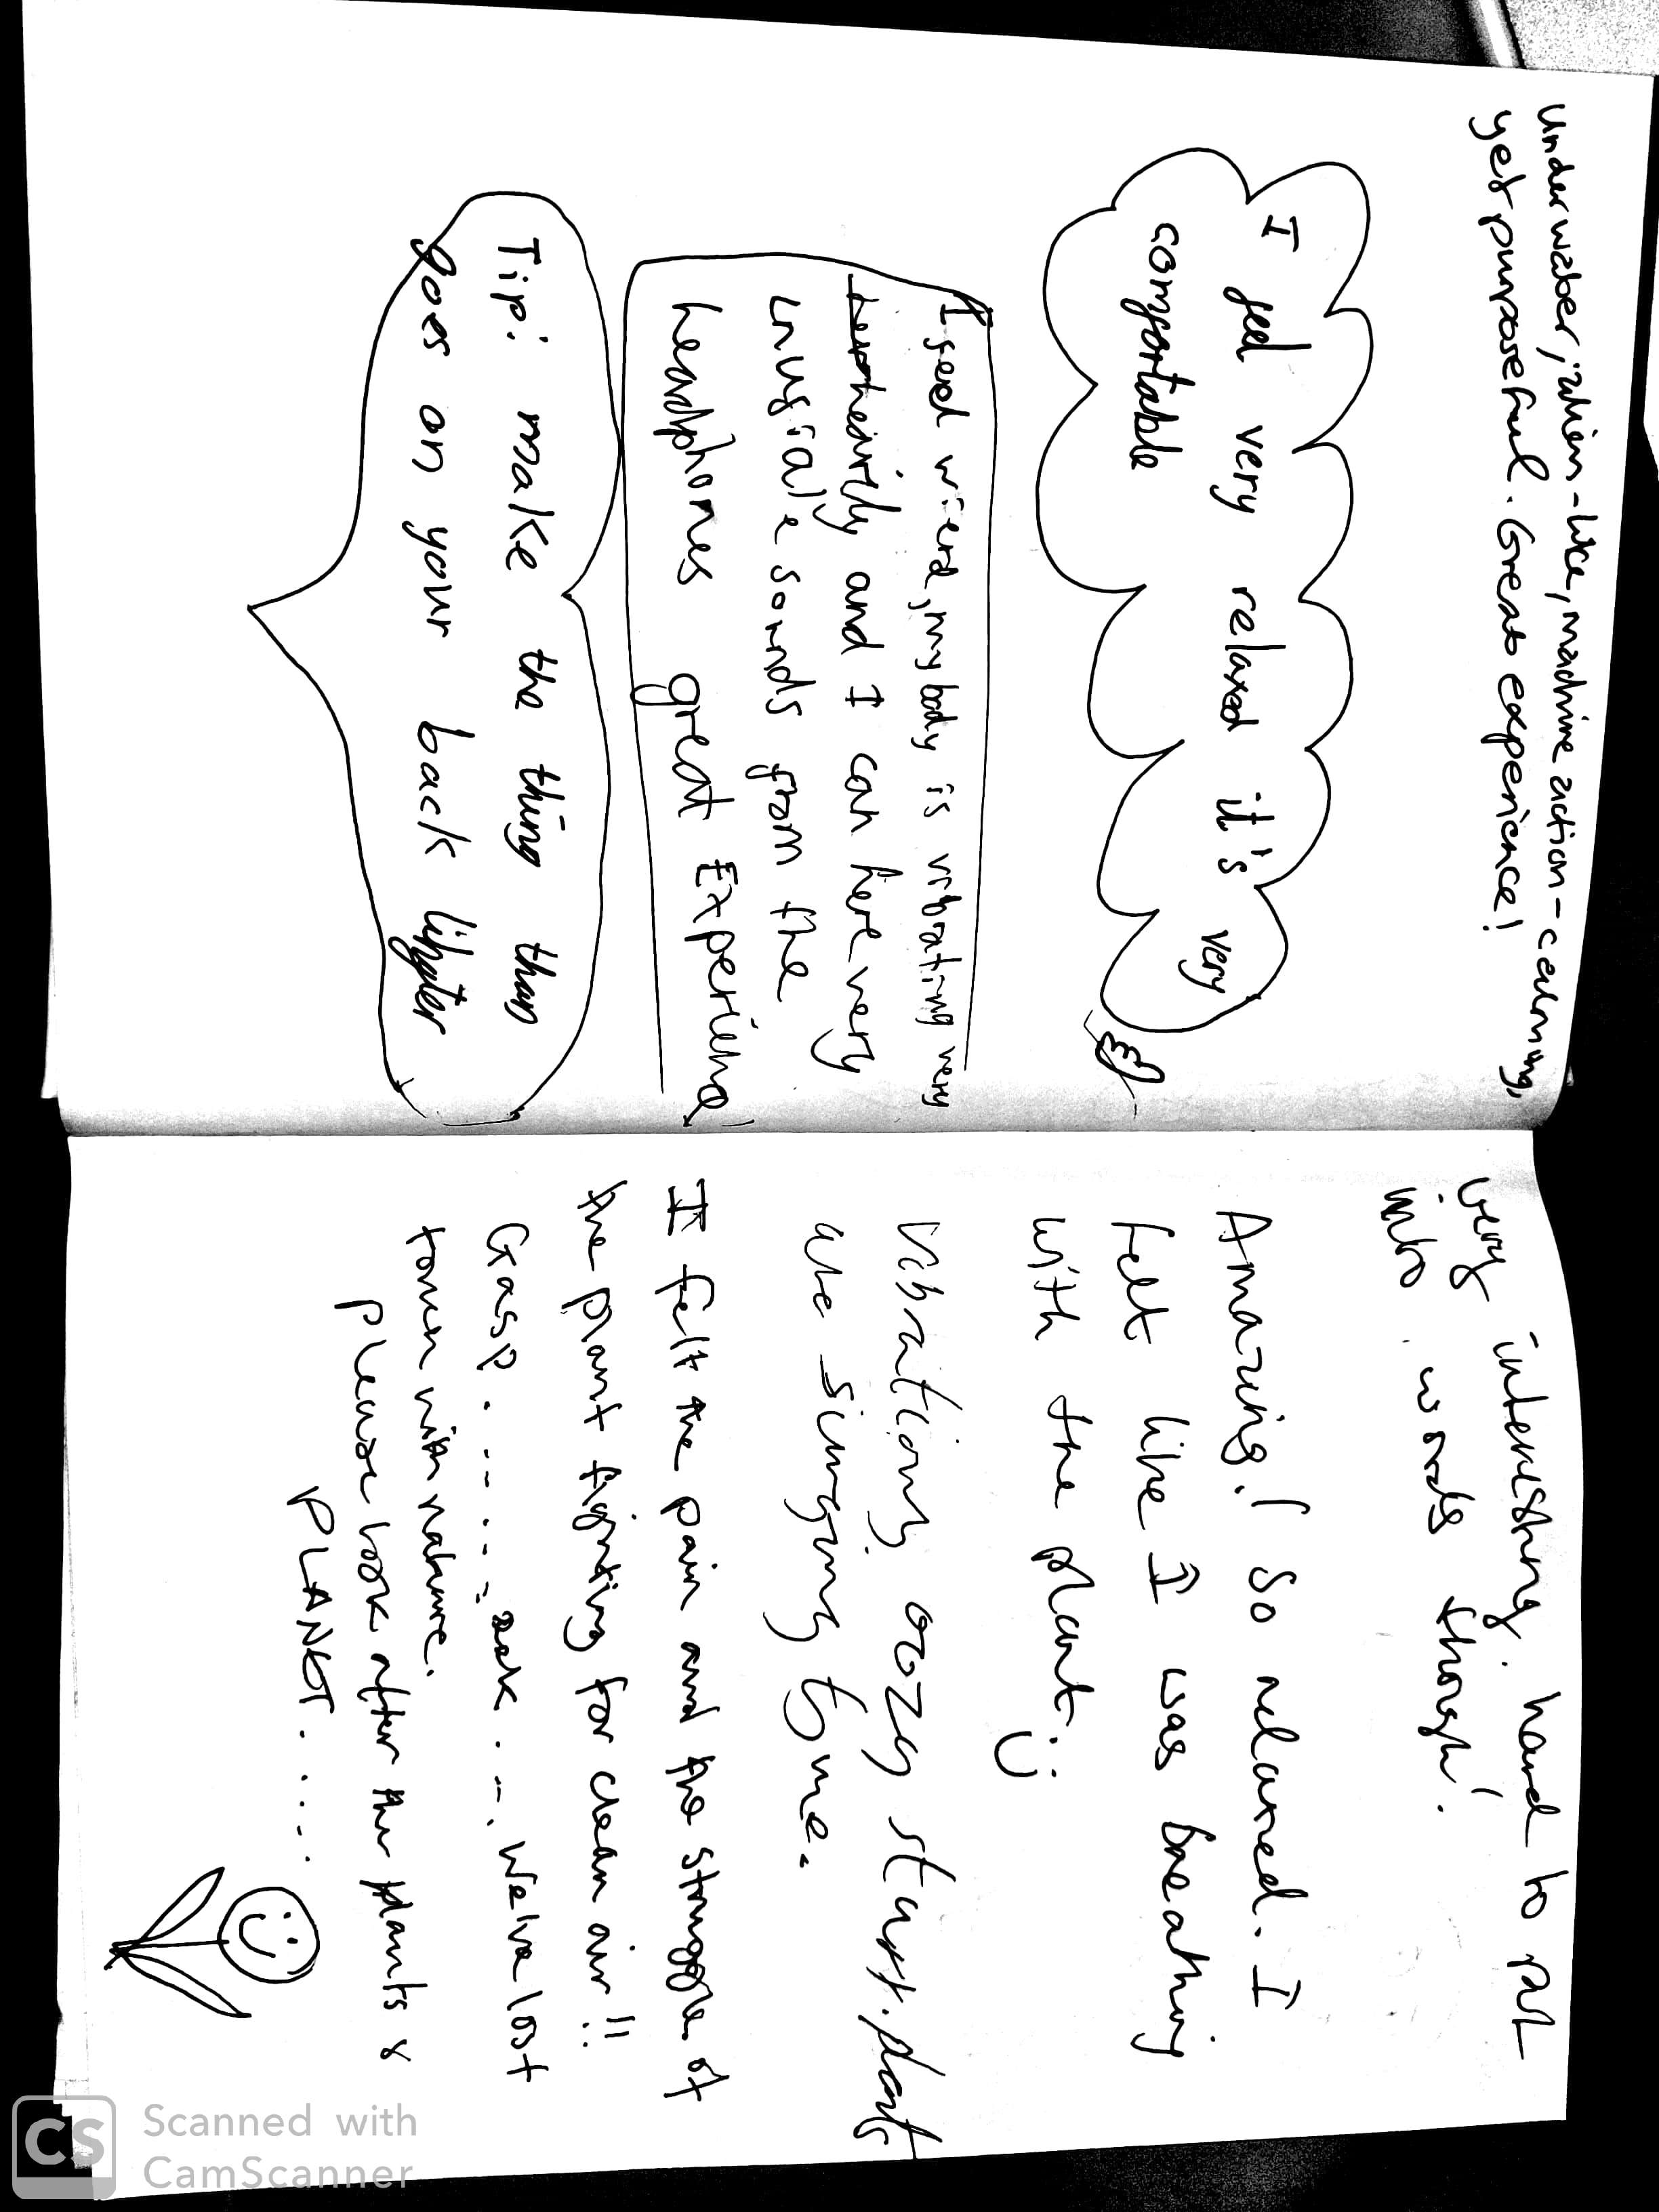 Underwater, alien-like, machine action - calming,
yet purposeful. Great experience!
I feel very relaxed it's very
comfortable
I feel wierd, my body is vibrating very
heavily and I can here very
inusiale sounds from the
headphones great Experience
Tip: make the thing than
goes on your back lihgter
very interesting. hard to put
into words though!
Amazing! So relaxed. I
felt like I was breathing
with the plant :)
Vibrations, oozy stuff. plants
are singing to me.
I felt the pain and the struggle of
the plant fighting for clean air!!
Gasp ........ We've lost
touch with nature.
please look after the plants &
PLANET.....
CS
Scanned with
CamScanner